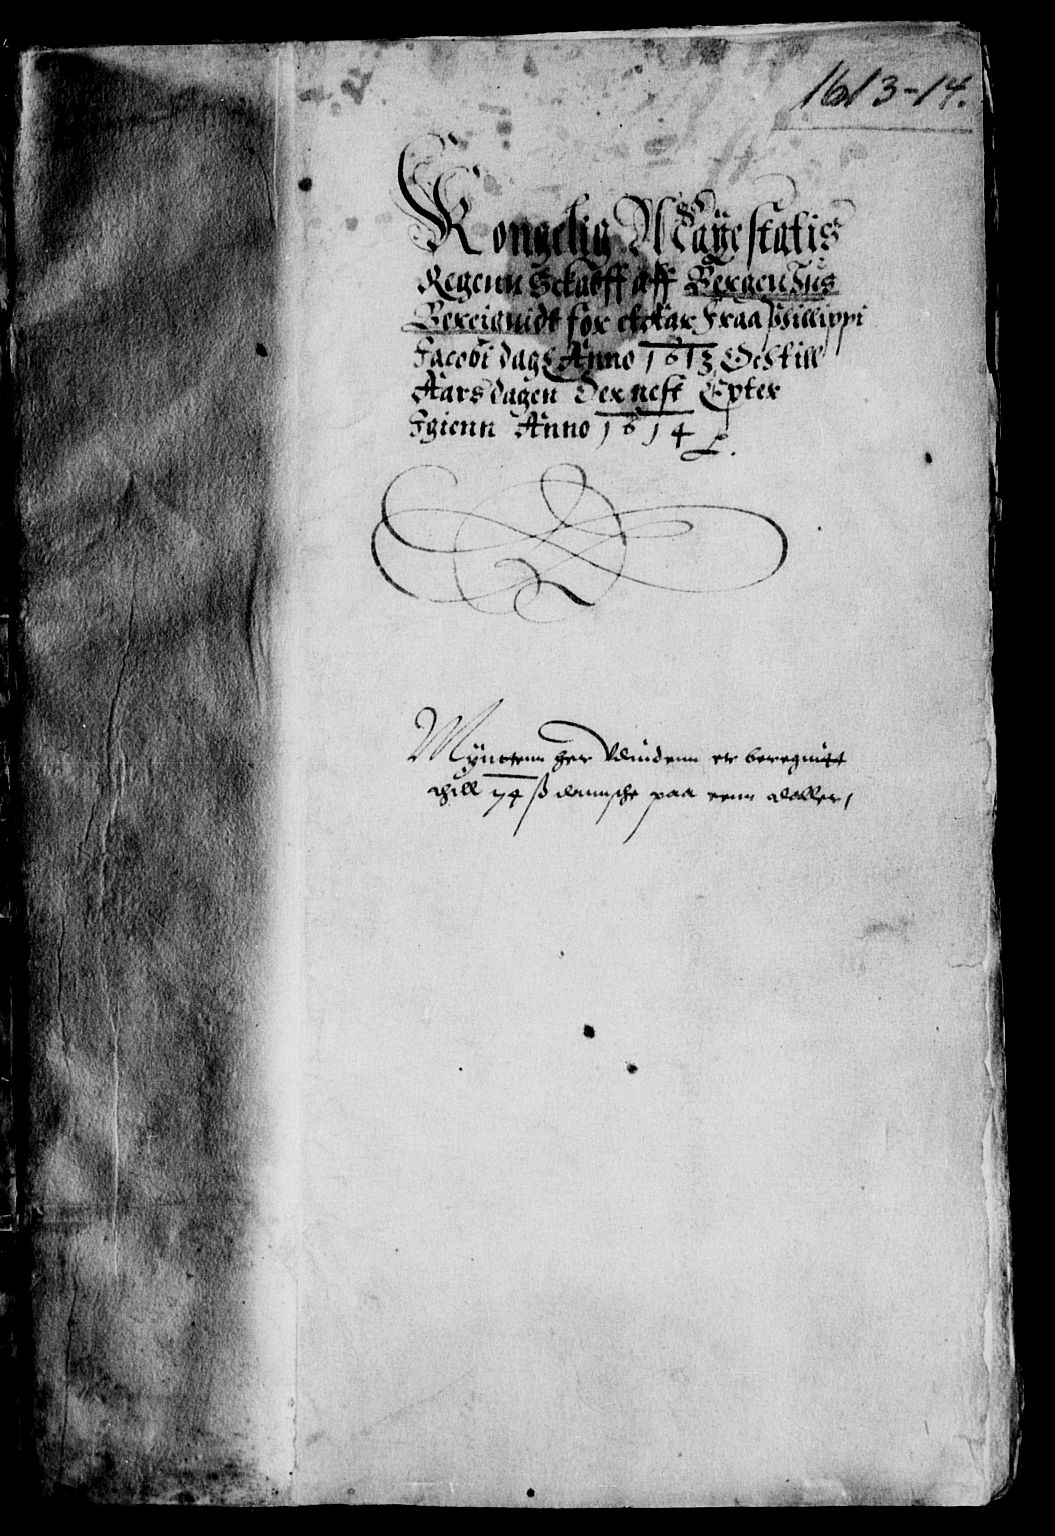 1613-14.
Kongelig Mayestatis
Regenn Schaff aff Bergenhus
Bereignidt for etCar Fraa Phillippi
Jacobi dags Anno 1613 Och till
Aars dagen der nest Epter
Igienn Anno 1614
Mÿntenn her udindenn er beregnitt
thill 74 ß dannsche paa eenn dalller